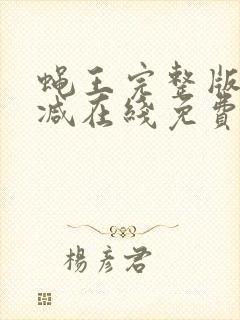 蝇王完整版
减在线免費
楊彦君